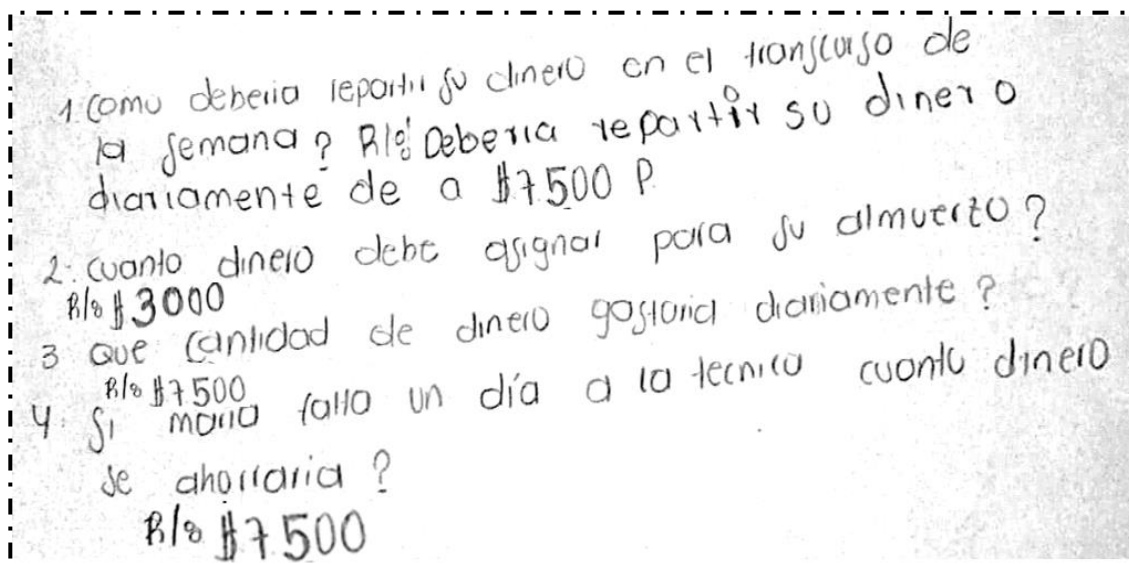 1. Como deberia repartir su dinero en el transcurso de
la semana? R/: Deberia repartir su dinero
diariamente de a $7.500 P.
2. cuanto dinero debe asignar para su almuerzo?
R/: $3000
3 Que cantidad de dinero gastaria diariamente?
R/: $7.500
4. Si maria falta un día a la tecnica cuanto dinero
se ahorraria?
R/: $7500